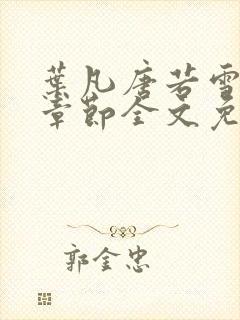 葉凡唐若雪
章節全文免
郭金忠